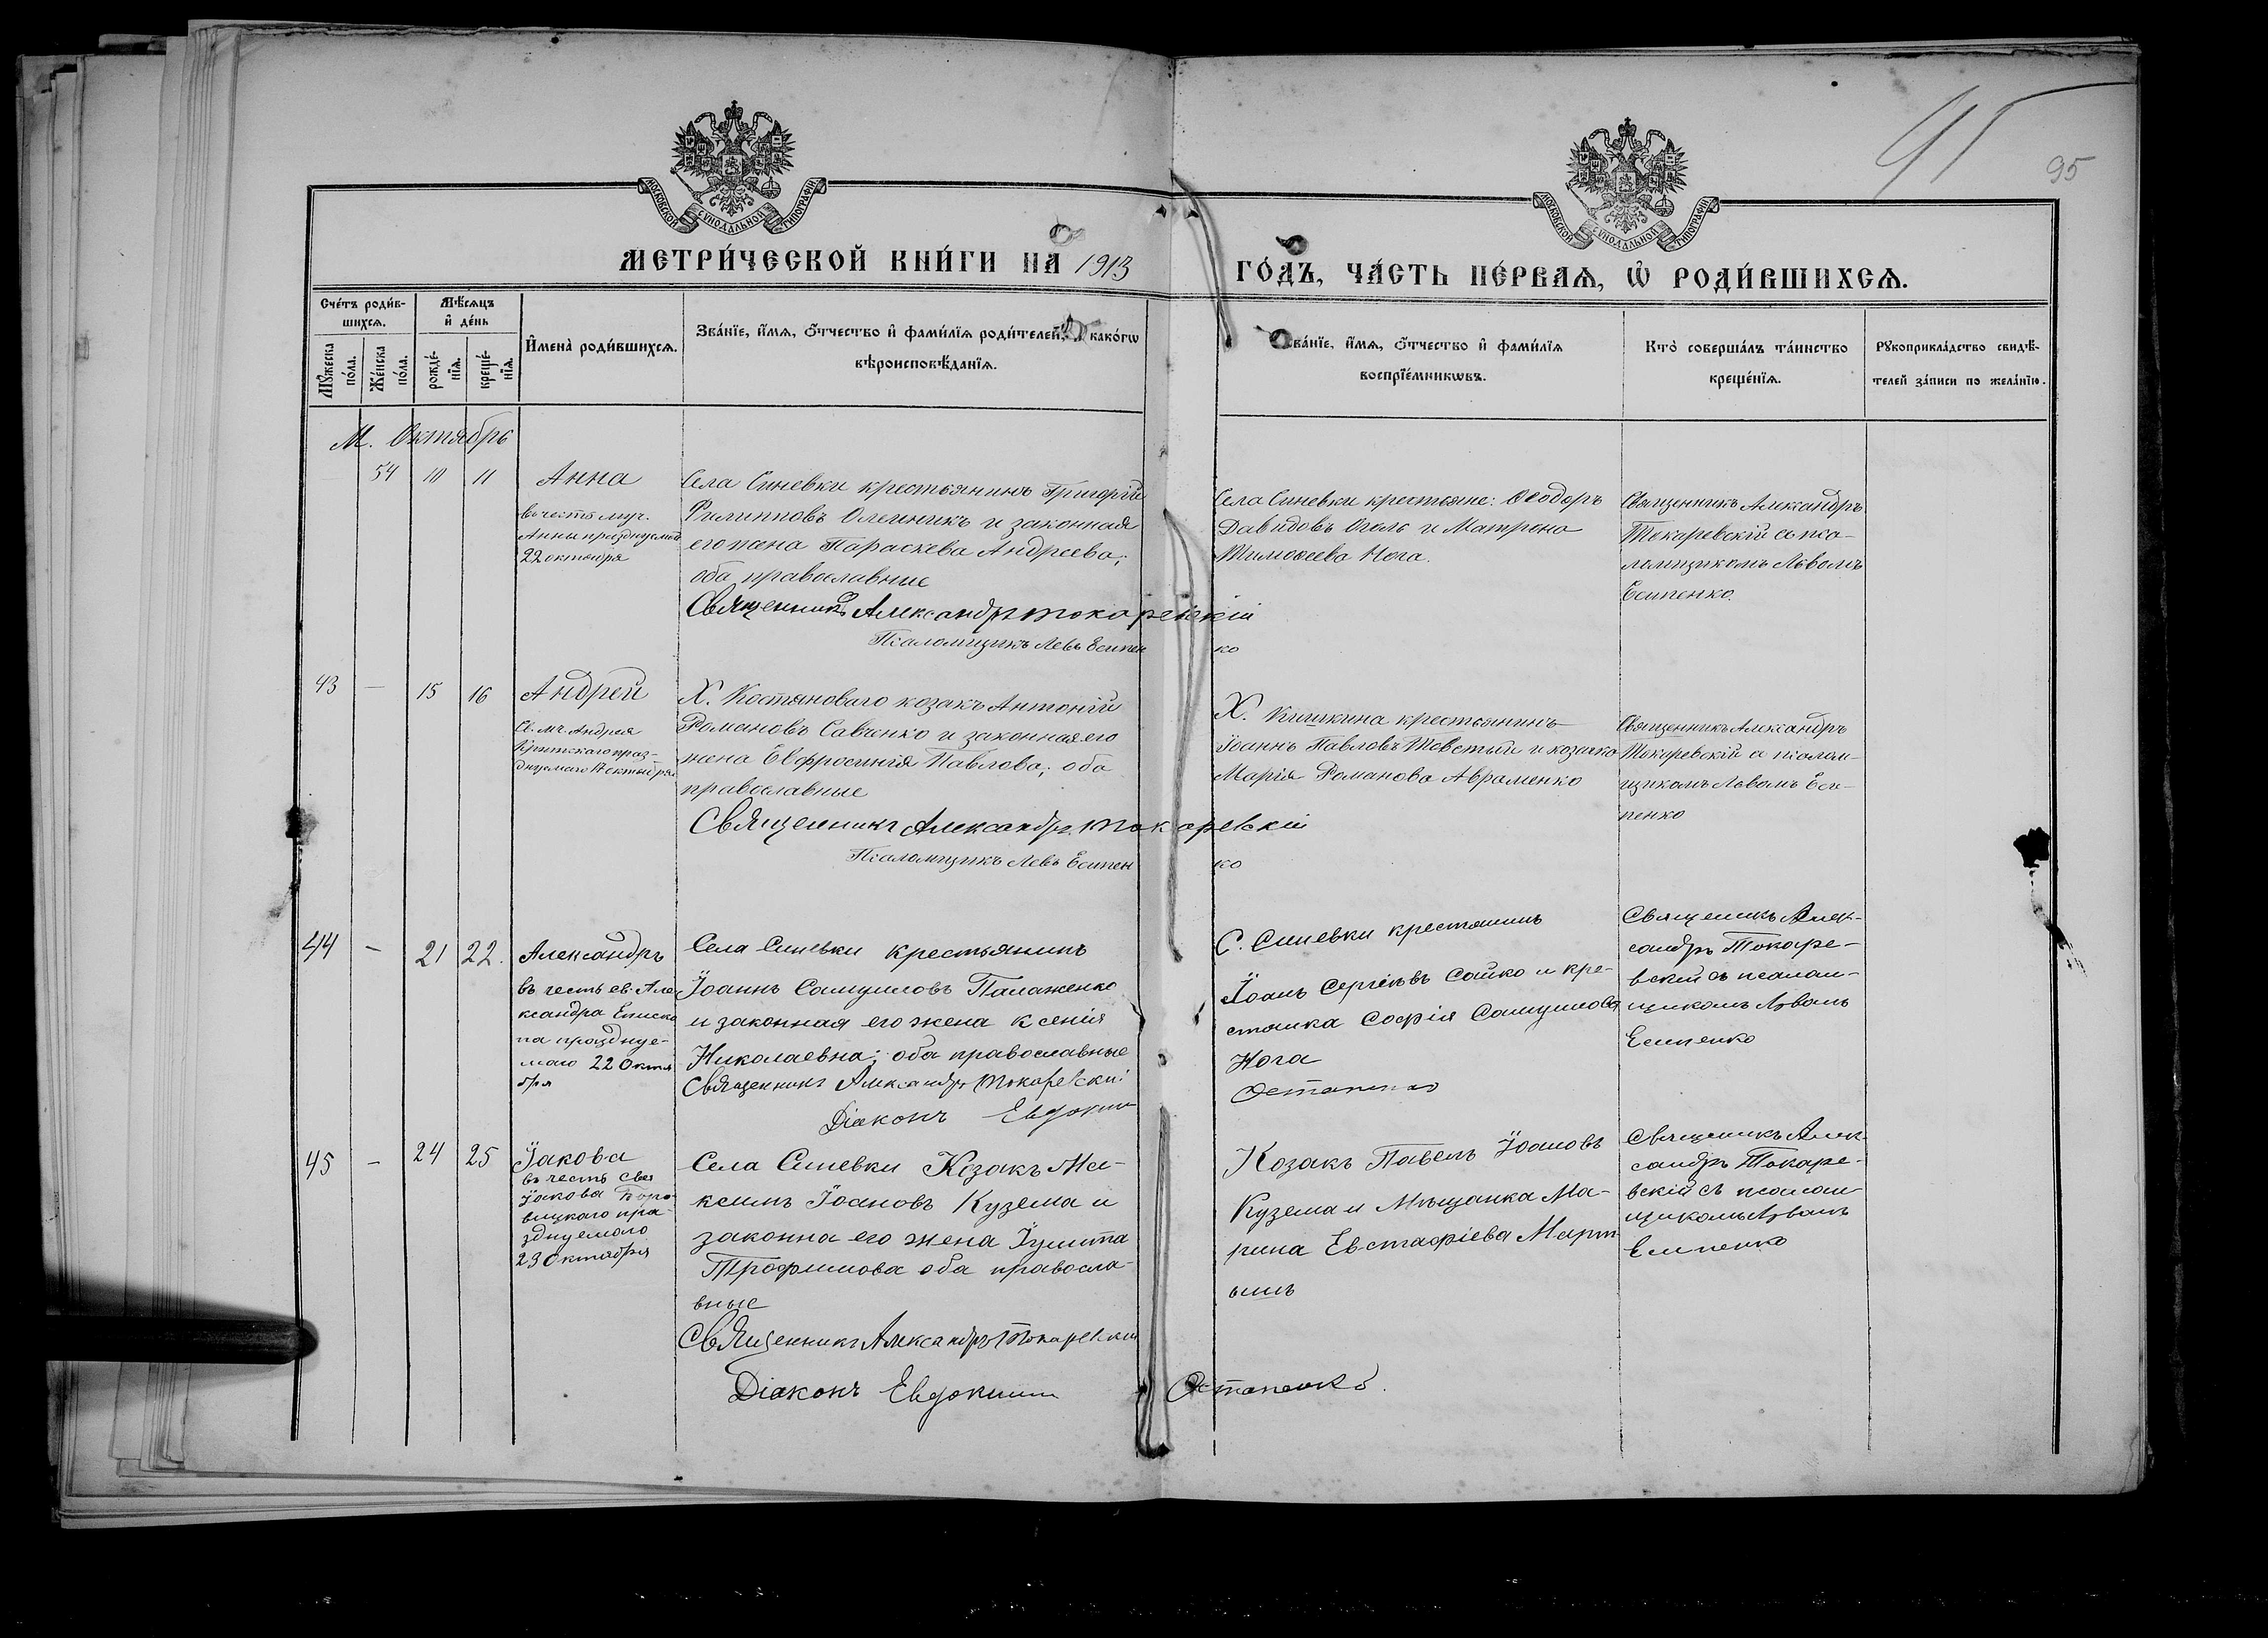 95
МОСКОВСКОЙ СѴНОДАЛЬНОЙ ТИПОГРАФІИ
МОСКОВСКОЙ СѴНОДАЛЬНОЙ ТИПОГРАФІИ
МЕТРИ́ЧЕСКОЙ КНИ́ГИ НА̀ 1913 ГО́ДЪ, ЧА́СТЬ ПЕ́РВАѦ, Ѡ҆ РОДИ́ВШИХСѦ.
Сче́тъ роди́в-
шихсѧ.
Мꙋ́жеска по́ла.
Же́нска по́ла.
Мѣ́сѧцъ
и҆ де́нь
рожде́-
нїѧ.
креще́-
нїѧ.
И҆мена̀ роди́вшихсѧ.
Зва́нїе, и҆́мѧ, ѻ҆́тчество и҆ фами́лїѧ роди́телей, како́гѡ
вѣроисповѣ́данїѧ.
Зва́нїе, и҆́мѧ, ѻ҆́тчество и҆ фами́лїѧ
воспрїе́мникѡвъ.
Кто̀ соверша́лъ та́инство
креще́нїѧ.
Рꙋкоприкла́дство свидѣ́-
телей за́писи по жела́нїю.
М. Октябрь
54 10 11
Анна
въ честь муч.
Анны празднуемой
22 октября
Села Синевки крестьянинъ Григорій
Филипповъ Олейникъ и законная
его жена Параскева Андреева;
оба православные
Священникъ Александръ Токаревскій
Псаломщикъ Левъ Есипенко
Села Синевки крестьяне: Ѳеодоръ
Давидовъ и Матрона
Тимоѳеева Нога.
Священникъ Александръ
Токаревскій съ пса-
ломщикомъ Львомъ
Есипенко.
43 — 15 16
Андрей
Св. мч. Андрея
Критскаго праз-
днуемаго 17 октября
Х. Костяноваго козакъ Антоній
Романовъ Савченко и законная его
жена Евфросинія Павлова; оба
православные
Священникъ Александръ Токаревскій
Псаломщикъ Левъ Есипенко
Х. Кишкина крестьянинъ
Іоаннъ Павловъ Товстый и козачка
Марія Романова Авраменко
Священникъ Александръ
Токаревскій съ псалом-
щикомъ Львомъ Еси-
пенко
44 — 21 22.
Александръ
въ честь св. Але-
ксандра Еписко
па праздnуе-
маго 22 Октя
бря
Села Синевки крестьянинъ
Іоаннъ Самуиловъ Палаженко
и законная его жена Ксенія
Николаевна; оба православные
Священникъ Александръ Токаревскій
Діаконъ Евдокимъ Остапенко
С. Синевки крестянинъ
Іоанъ Сергіевъ Сайко и кре-
стянка Софія Самуилова
Нога
Священикъ Алек-
сандръ Токаре-
вскій съ псалом-
щикомъ Львомъ
Есипенко
45 — 24 25
Іакова
въ честь Свя
Іакова Боро-
вицкаго пра-
зднуемаго
23 Октября
Села Синевки Козакъ Ма-
ксимъ Іоановъ Кузема и
законна его жена Іулитта
Трофимова оба правосла-
вные
Священникъ Александръ Токаревскій
Діаконъ Евдокимъ Остапенко.
Козакъ Павелъ Іоановъ
Кузема и Мѣщанка Ма-
рина Евстафіева
Священикъ Алек-
сандръ Токаре-
вскій съ псалом
щикомъ Львомъ
Есипенко